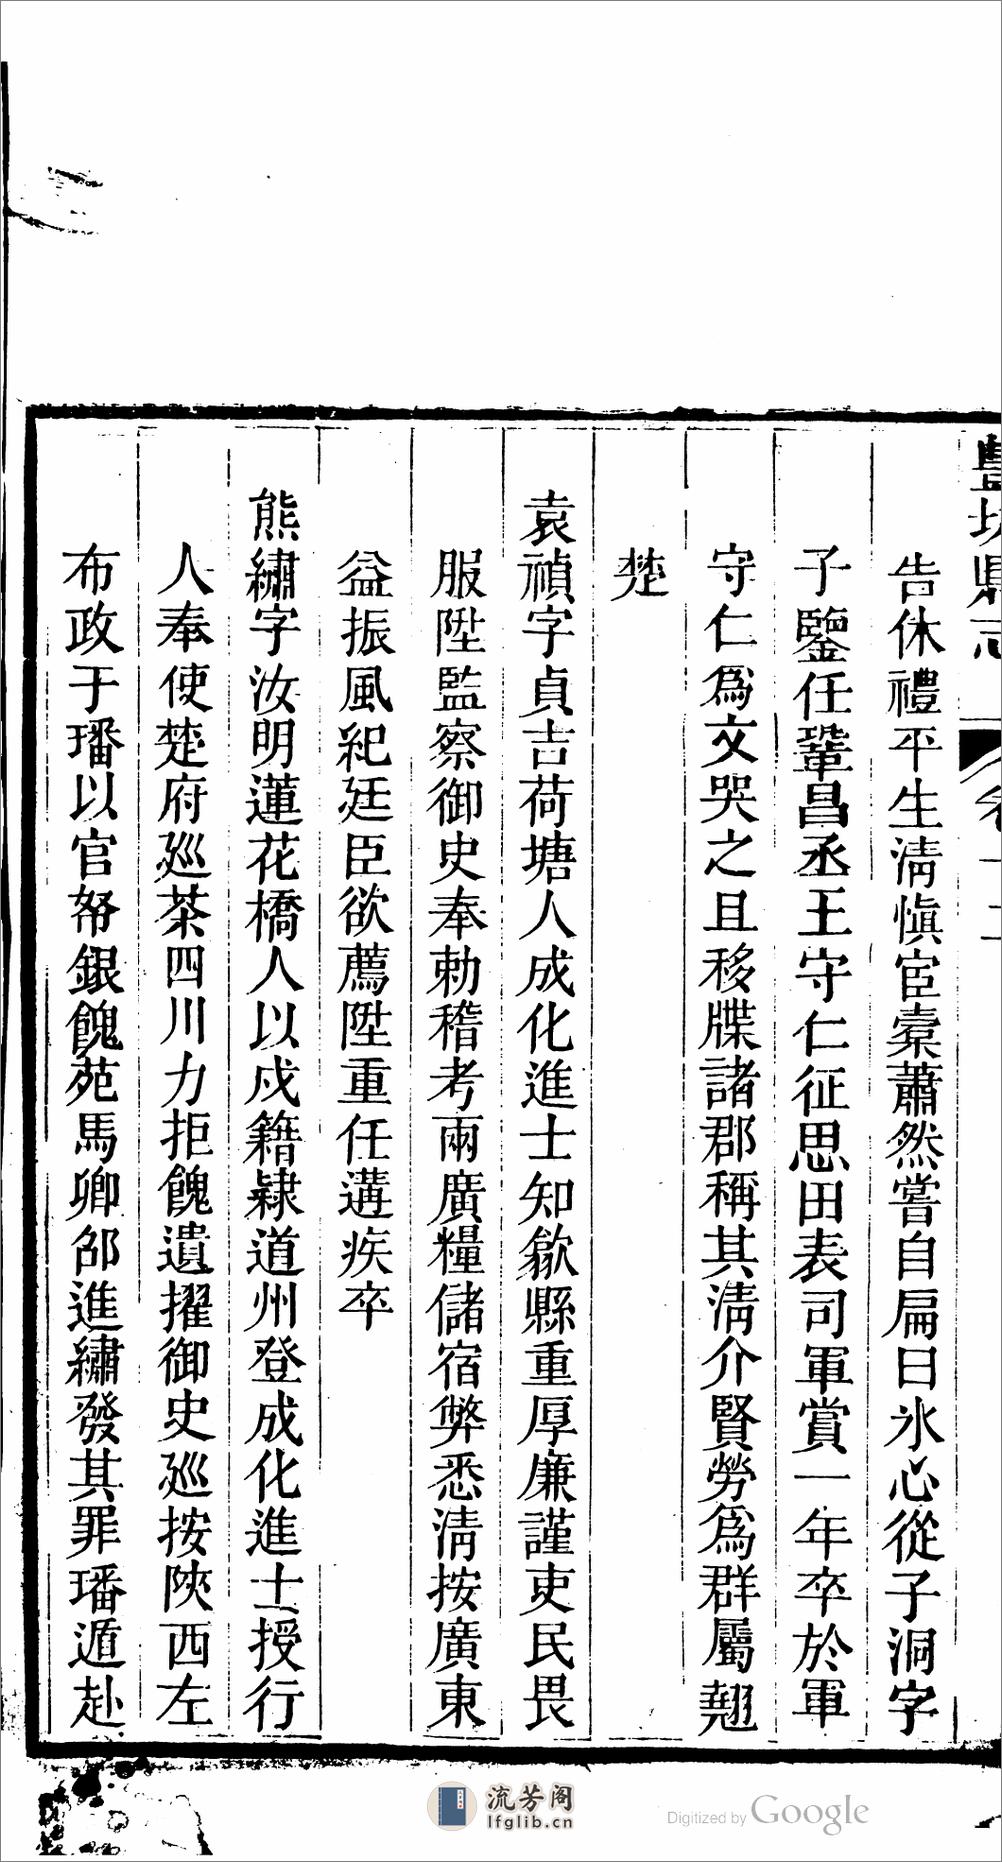 豐城縣志 卷十
告休禮平生淸愼宦橐蕭然嘗自扁曰氷心從子洞字
子鑒任鞏昌丞王守仁征思田表司軍賞一年卒於軍
守仁爲文哭之且移牒諸郡稱其淸介賢勞爲群屬翹
楚
袁禎字貞吉荷塘人成化進士知歙縣重厚廉謹吏民畏
服陞監察御史奉勅稽考兩廣糧儲宿弊悉淸按廣東
益振風紀廷臣欲薦陞重任遘疾卒
熊繡字汝明蓮花橋人以戍籍隷道州登成化進士授行
人奉使楚府廵茶四川力拒餽遺擢御史廵按陜西左
布政于璠以官帑銀餽苑馬卿邰進繡發其罪璠遁赴
流芳阁
lfglib.cn
Digitized by Google